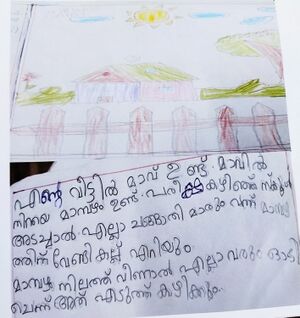 എന്റെ വീട്ടിൽ മാവ് ഉണ്ട്. മാവിൽ
നിറയെ മാമ്പഴം ഉണ്ട്. പരീക്ഷകഴിഞ്ഞ സ്കൂൾ
അടച്ചാൽ എല്ലാ ചങ്ങാതി മാരും വന്ന് മാമ്പഴ
ത്തിന് വേണ്ടി കല്ല് എറിയും
മാമ്പഴം നിലത്ത് വീണാൽ എല്ലാ വരും ഓടി
ചെന്ന് അത് എടുത്ത് കഴിക്കും.